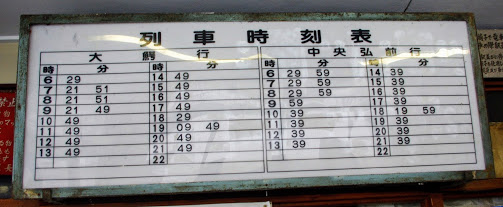 列車時刻表
大鰐行 中央弘前行
時 分 時 分 時 分 時 分
6 29 14 49 6 29 59 14 39
7 21 51 15 49 7 29 59 15 39
8 21 51 16 49 8 29 59 16 39
9 21 49 17 49 9 59 17 39
10 49 18 29 10 39 18 19 59
11 49 19 09 49 11 39 19 39
12 49 20 49 12 39 20 39
13 49 21 49 13 39 21 39
22 22